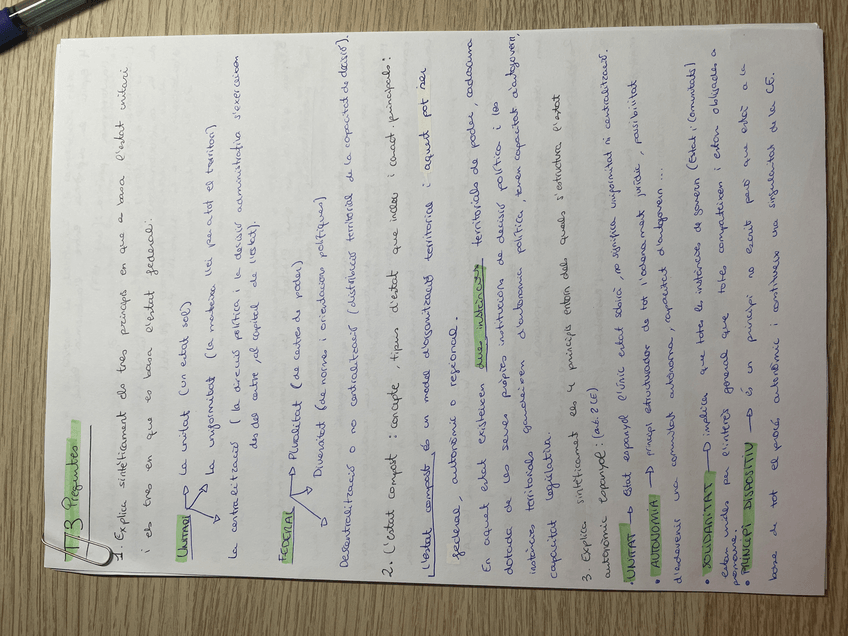 T13 Preguntes
1. Explica sintèticament els tres principis en que es basa l'estat unitari
i els tres en que es basa l'estat federal:
UNITARI → La unitat (un estat sol)
→ La uniformitat (la mateixa llei per a tot el territori)
La centralització (la direcció política i la decisió administrativa s'exerceixen
des del centre, al capital de l'estat).
FEDERAL → Pluralitat (de centres de poder)
→ Diversitat (de normes i orientacions polítiques)
Descentralització o no centralització (distribució territorial de la capacitat de decisió).
2. L'estat compost: concepte, tipus d'estat que inclou i caract. principals:
L'estat compost és un model d'organització territorial i aquest pot ser
federal, autonòmic o regional.
En aquest estat existeixen dues instàncies territorials de poder, cadascuna
dotada de les seves pròpies institucions de decisió política i les
instàncies territorials gaudeixen d'autonomia política, tenen capacitat d'autogovern,
capacitat legislativa.
3. Explica sintèticament els 4 principis entorn dels quals s'estructura l'estat
autonòmic espanyol: (art. 2 CE).
• UNITAT → Estat espanyol l'únic estat sobirà, no significa uniformitat ni centralització.
• AUTONOMIA → principi estructurador de tot l'ordenament jurídic, possibilitat
d'esdevenir una comunitat autònoma, capacitat d'autogovern...
• SOLIDARITAT → implica que totes les instàncies de govern (Estat i Comunitats)
estan unides per l'interès general que totes comparteixen i estan obligades a
• PRINCIPI DISPOSITIU → és un principi no escrit però que està a la
base de tot el procés autonòmic i constitueix una singularitat de la CE.